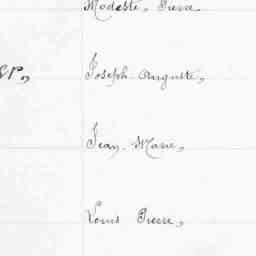 Modeste, Pierre
er,
Joseph Auguste,
Jean Marie,
Louis Pierre,